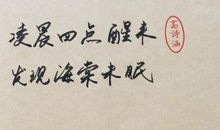 凌晨四点醒来
发现海棠未眠
高诗涵